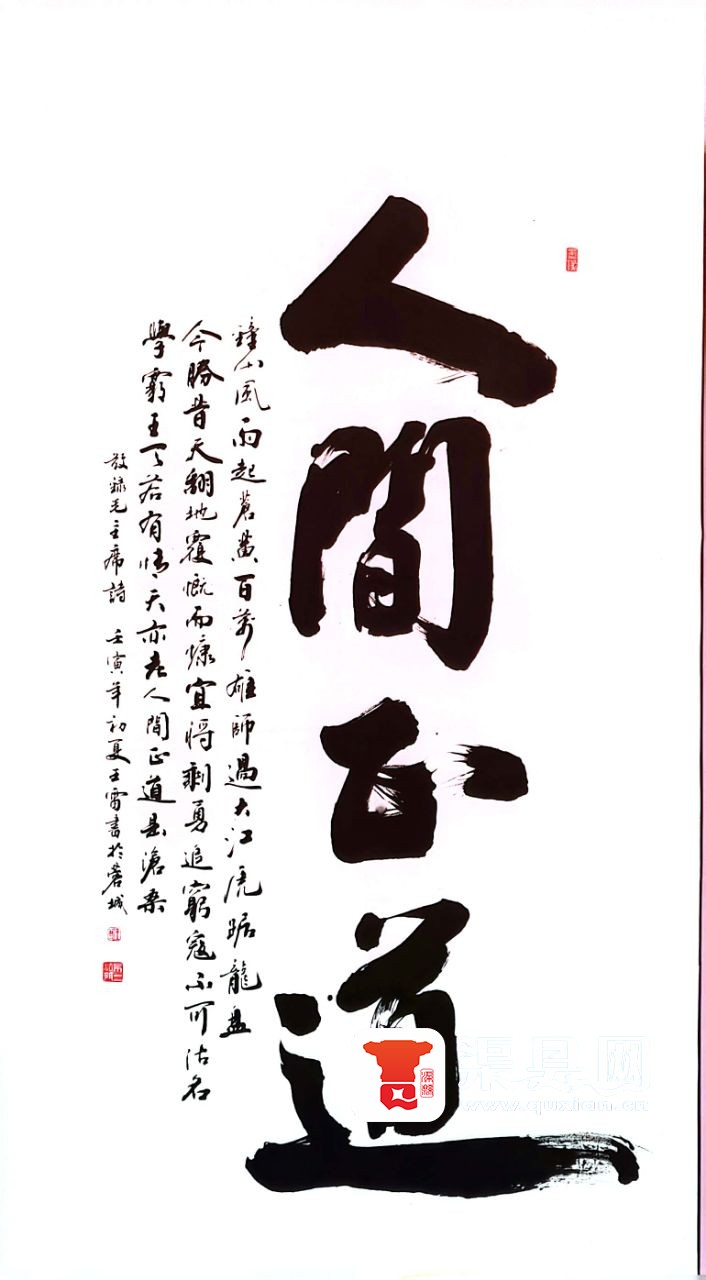 人間正道
鐘山風雨起蒼黃百萬雄師過大江虎踞龍盤
今勝昔天翻地覆慨而慷宜將剩勇追窮寇不可沽名
學霸王天若有情天亦老人間正道是滄桑
敬録毛主席詩 壬寅年初夏王雷書於蓉城
渠县网
www.quxian.cn